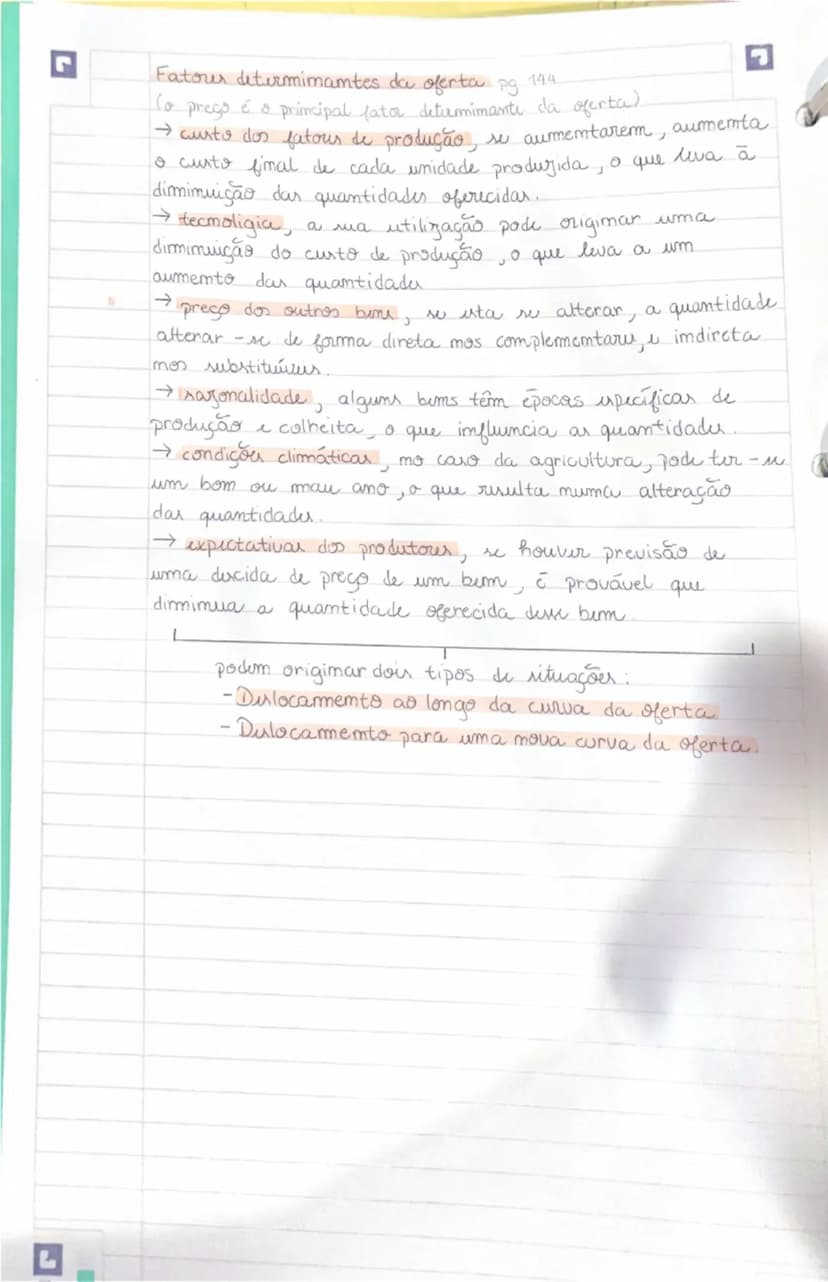 Fatores determinantes da oferta pg 144
(o preço é o principal fator determinante da oferta)
→ custo dos fatores de produção, se aumentarem, aumenta
o custo final de cada unidade produzida, o que leva à
diminuição das quantidades oferecidas.
→ tecnoligia, a sua utilização pode originar uma
diminuição do custo de produção, o que leva a um
aumento das quantidades
→ preço dos outros bens, se esta se alterar, a quantidade
alterar-se de forma direta nos complementares, e indireta
nos substituíveis.
→ sazonalidade, alguns bens têm épocas específicas de
produção e colheita, o que influencia as quantidades.
→ condições climáticas, no caso da agricultura, pode ter-se
um bom ou mau ano, o que resulta numa alteração
das quantidades.
→ expectativas dos produtores, se houver previsão de
uma descida de preço de um bem, é provável que
diminua a quantidade oferecida desse bem.
podem originar dois tipos de situações:
- Deslocamento ao longo da curva da oferta
- Deslocamento para uma nova curva da oferta.